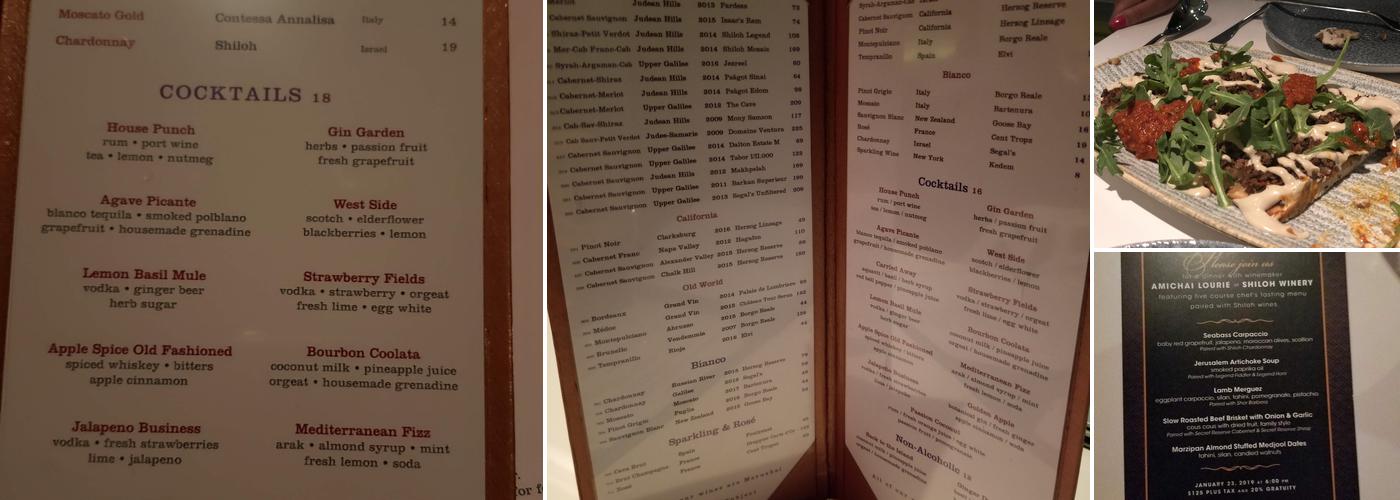 Moscato Gold Contessa Annalisa Italy 14
Chardonnay Shiloh Israel 19
COCKTAILS 18
House Punch
rum • port wine
tea • lemon • nutmeg
Gin Garden
herbs • passion fruit
fresh grapefruit
Agave Picante
blanco tequila • smoked polblano
grapefruit • housemade grenadine
West Side
scotch • elderflower
blackberries • lemon
Lemon Basil Mule
vodka • ginger beer
herb sugar
Strawberry Fields
vodka • strawberry • orgeat
fresh lime • egg white
Apple Spice Old Fashioned
spiced whiskey • bitters
apple cinnamon
Bourbon Coolata
coconut milk • pineapple juice
orgeat • housemade grenadine
Jalapeno Business
vodka • fresh strawberries
lime • jalapeno
Mediterranean Fizz
arak • almond syrup • mint
fresh lemon • soda
Merlot Judean Hills 2013 Pardess 73
Cabernet Sauvignon Judean Hills 2015 Issac's Ram 74
Shiraz-Petit Verdot Judean Hills 2014 Shiloh Legend 108
Mer-Cab Franc-Cab Judean Hills 2014 Shiloh Mosaic 169
Syrah-Argaman-Cab Upper Galilee 2016 Jezreel 60
Cabernet-Shiraz Judean Hills 2014 Psâgot Sinai 64
Cabernet-Merlot Judean Hills 2014 Psâgot Edom 98
Cabernet-Merlot Upper Galilee 2012 The Cave 209
Cab-Sav-Shiraz Judean Hills 2009 Mony Samson 117
Cab Sauv-Petit Verdot Judea-Samaria 2009 Domaine Ventura 225
Cabernet Sauvignon Upper Galilee 2014 Dalton Estate M 69
Cabernet Sauvignon Upper Galilee 2014 Tabor 1/11.000 122
Cabernet Sauvignon Judean Hills 2012 Makhpelah 169
Cabernet Sauvignon Upper Galilee 2011 Barkan Superieur 199
Cabernet Sauvignon Upper Galilee 2013 Segal's Unfiltered 209
California
Pinot Noir Clarksburg 2016 Herzog Lineage 49
Cabernet Franc Napa Valley 2012 Hagafen 110
Cabernet Sauvignon Alexander Valley 2015 Herzog Reserve 98
Cabernet Sauvignon Chalk Hill 2015 Herzog Reserve
Old World
Bordeaux Grand Vin 2014
Médoc Grand Vin 2015
Montepulciano Abruzzo 2016 Borgo Reale
Brunello Vendemmia 2007 Borgo Reale
Tempranillo Rioja 2016 Elvi 44
Bianco
Chardonnay Russian River 2015 Herzog Reserve
Chardonnay Galilee 2016 Segal's
Moscato Moscato 2017 Bartenura
Pinot Grigio Puglia 2016 Borgo Reale
Sauvignon Blanc New Zealand 2015 Goose Bay
Sparkling & Rosé
Cava Brut Spain
Brut Champagne France
Rosé France
Syrah-Argaman-Cab California Herzog Reserve
Cabernet Sauvignon California Herzog Lineage
Pinot Noir Italy Borgo Reale
Montepulciano Spain Elvi
Tempranillo
Bianco
Pinot Grigio Italy Borgo Reale
Moscato Italy Bartenura
Sauvignon Blanc New Zealand Goose Bay
Rosé France Cent Tropez
Chardonnay Israel Segal's 14
Sparkling Wine New York Kedem 8
Cocktails 16
House Punch
rum / port wine
tea / lemon / nutmeg
Gin Garden
herbs / passion fruit
fresh grapefruit
Agave Picante
blanco tequila / smoked poblano
grapefruit / housemade grenadine
West Side
scotch / elderflower
blackberries / lemon
Carried Away
aquavit / basil / herb syrup
red bell pepper / pineapple juice
Strawberry Fields
vodka / strawberry / orgeat
fresh lime / egg white
Lemon Basil Mule
vodka / ginger beer
herb sugar
Bourbon Coolata
coconut milk / pineapple juice
orgeat / housemade grenadine
Apple Spice Old Fashioned
spiced whiskey / bitters
apple cinnamon
Mediterranean Fizz
arak / almond syrup / mint
fresh lemon / soda
Jalapeño Business
vodka / fresh strawberries
lime / jalapeño
Golden Apple
botanical gin / fresh ginger
apple cinnamon / soda
Passion Coconut
rum / fresh orange juice / egg white
passion fruit / coconut
Non-Alcoholic 12
Back to the Island
Please join us
for a dinner with winemaker
AMICHAI LOURIE of SHILOH WINERY
featuring five course chef's tasting menu
paired with Shiloh wines.
Seabass Carpaccio
baby red grapefruit, jalapeno, moroccan olives, scallion
Paired with Shiloh Chardonnay
Jerusalem Artichoke Soup
smoked paprika oil
Paired with Legend Fiddler & Legend Honi
Lamb Merguez
eggplant carpaccio, silan, tahini, pomegranate, pistachio
Paired with Shor Barbera
Slow Roasted Beef Brisket with Onion & Garlic
cous cous with dried fruit, family style
Paired with Secret Reserve Cabernet & Secret Reserve Shiraz
Marzipan Almond Stuffed Medjool Dates
tahini, silan, candied walnuts
JANUARY 23, 2019 AT 6:00 PM
$125 PLUS TAX AND 20% GRATUITY